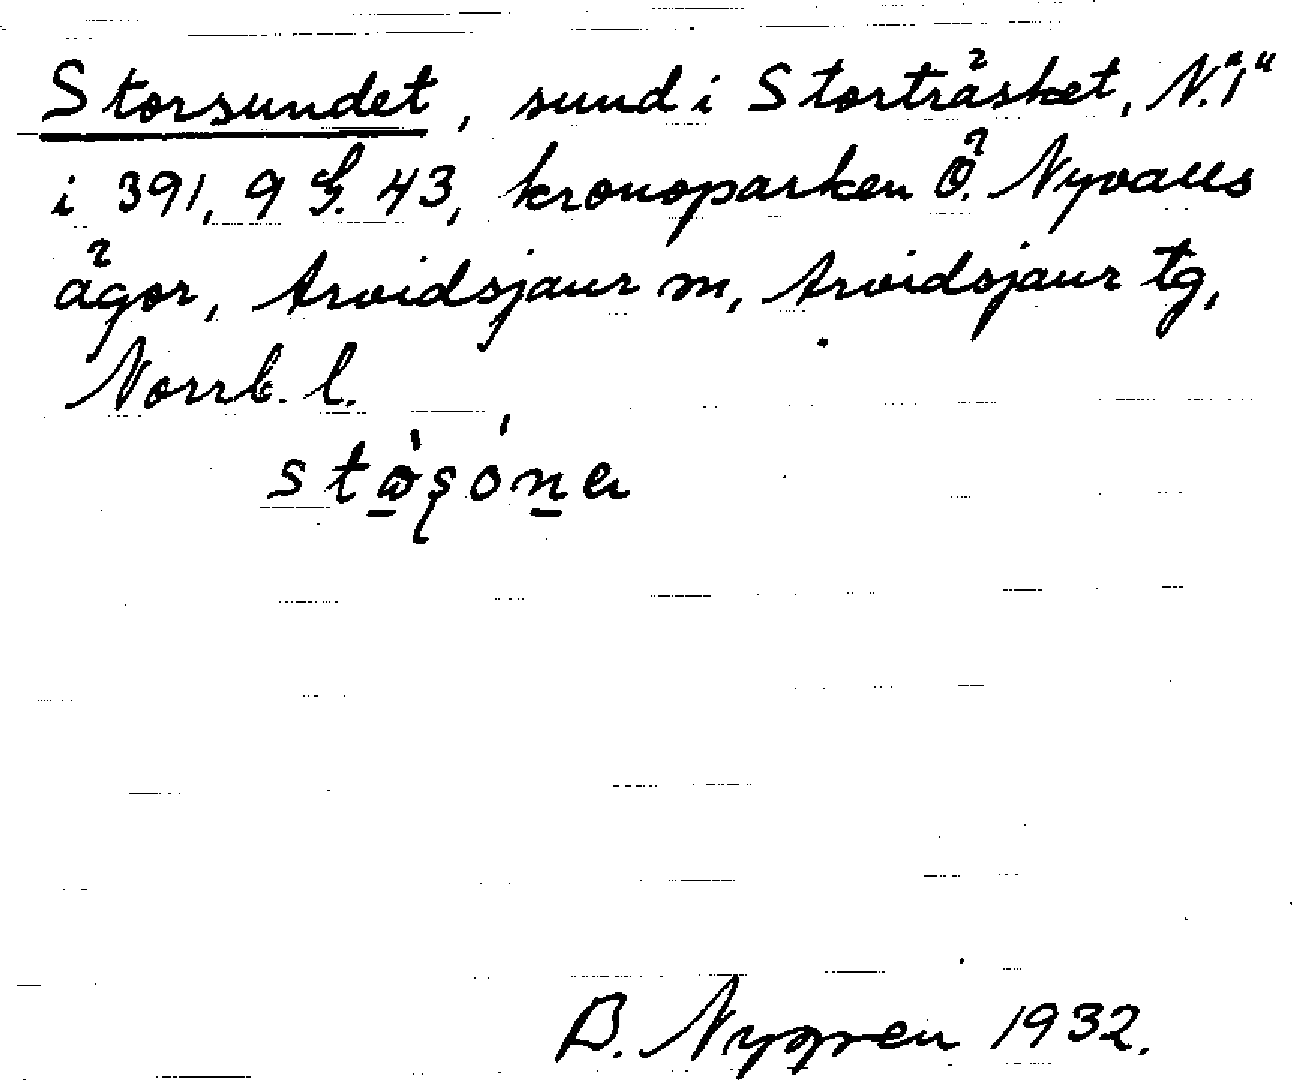 Storsundet, sund i Storträsket, N. "1"
i 391, 9 G. 43, kronoparken Ö. Nyvalls
ägor, Arvidsjaur m, Arvidsjaur tg,
Norrb. l.
B. Nygren 1932.